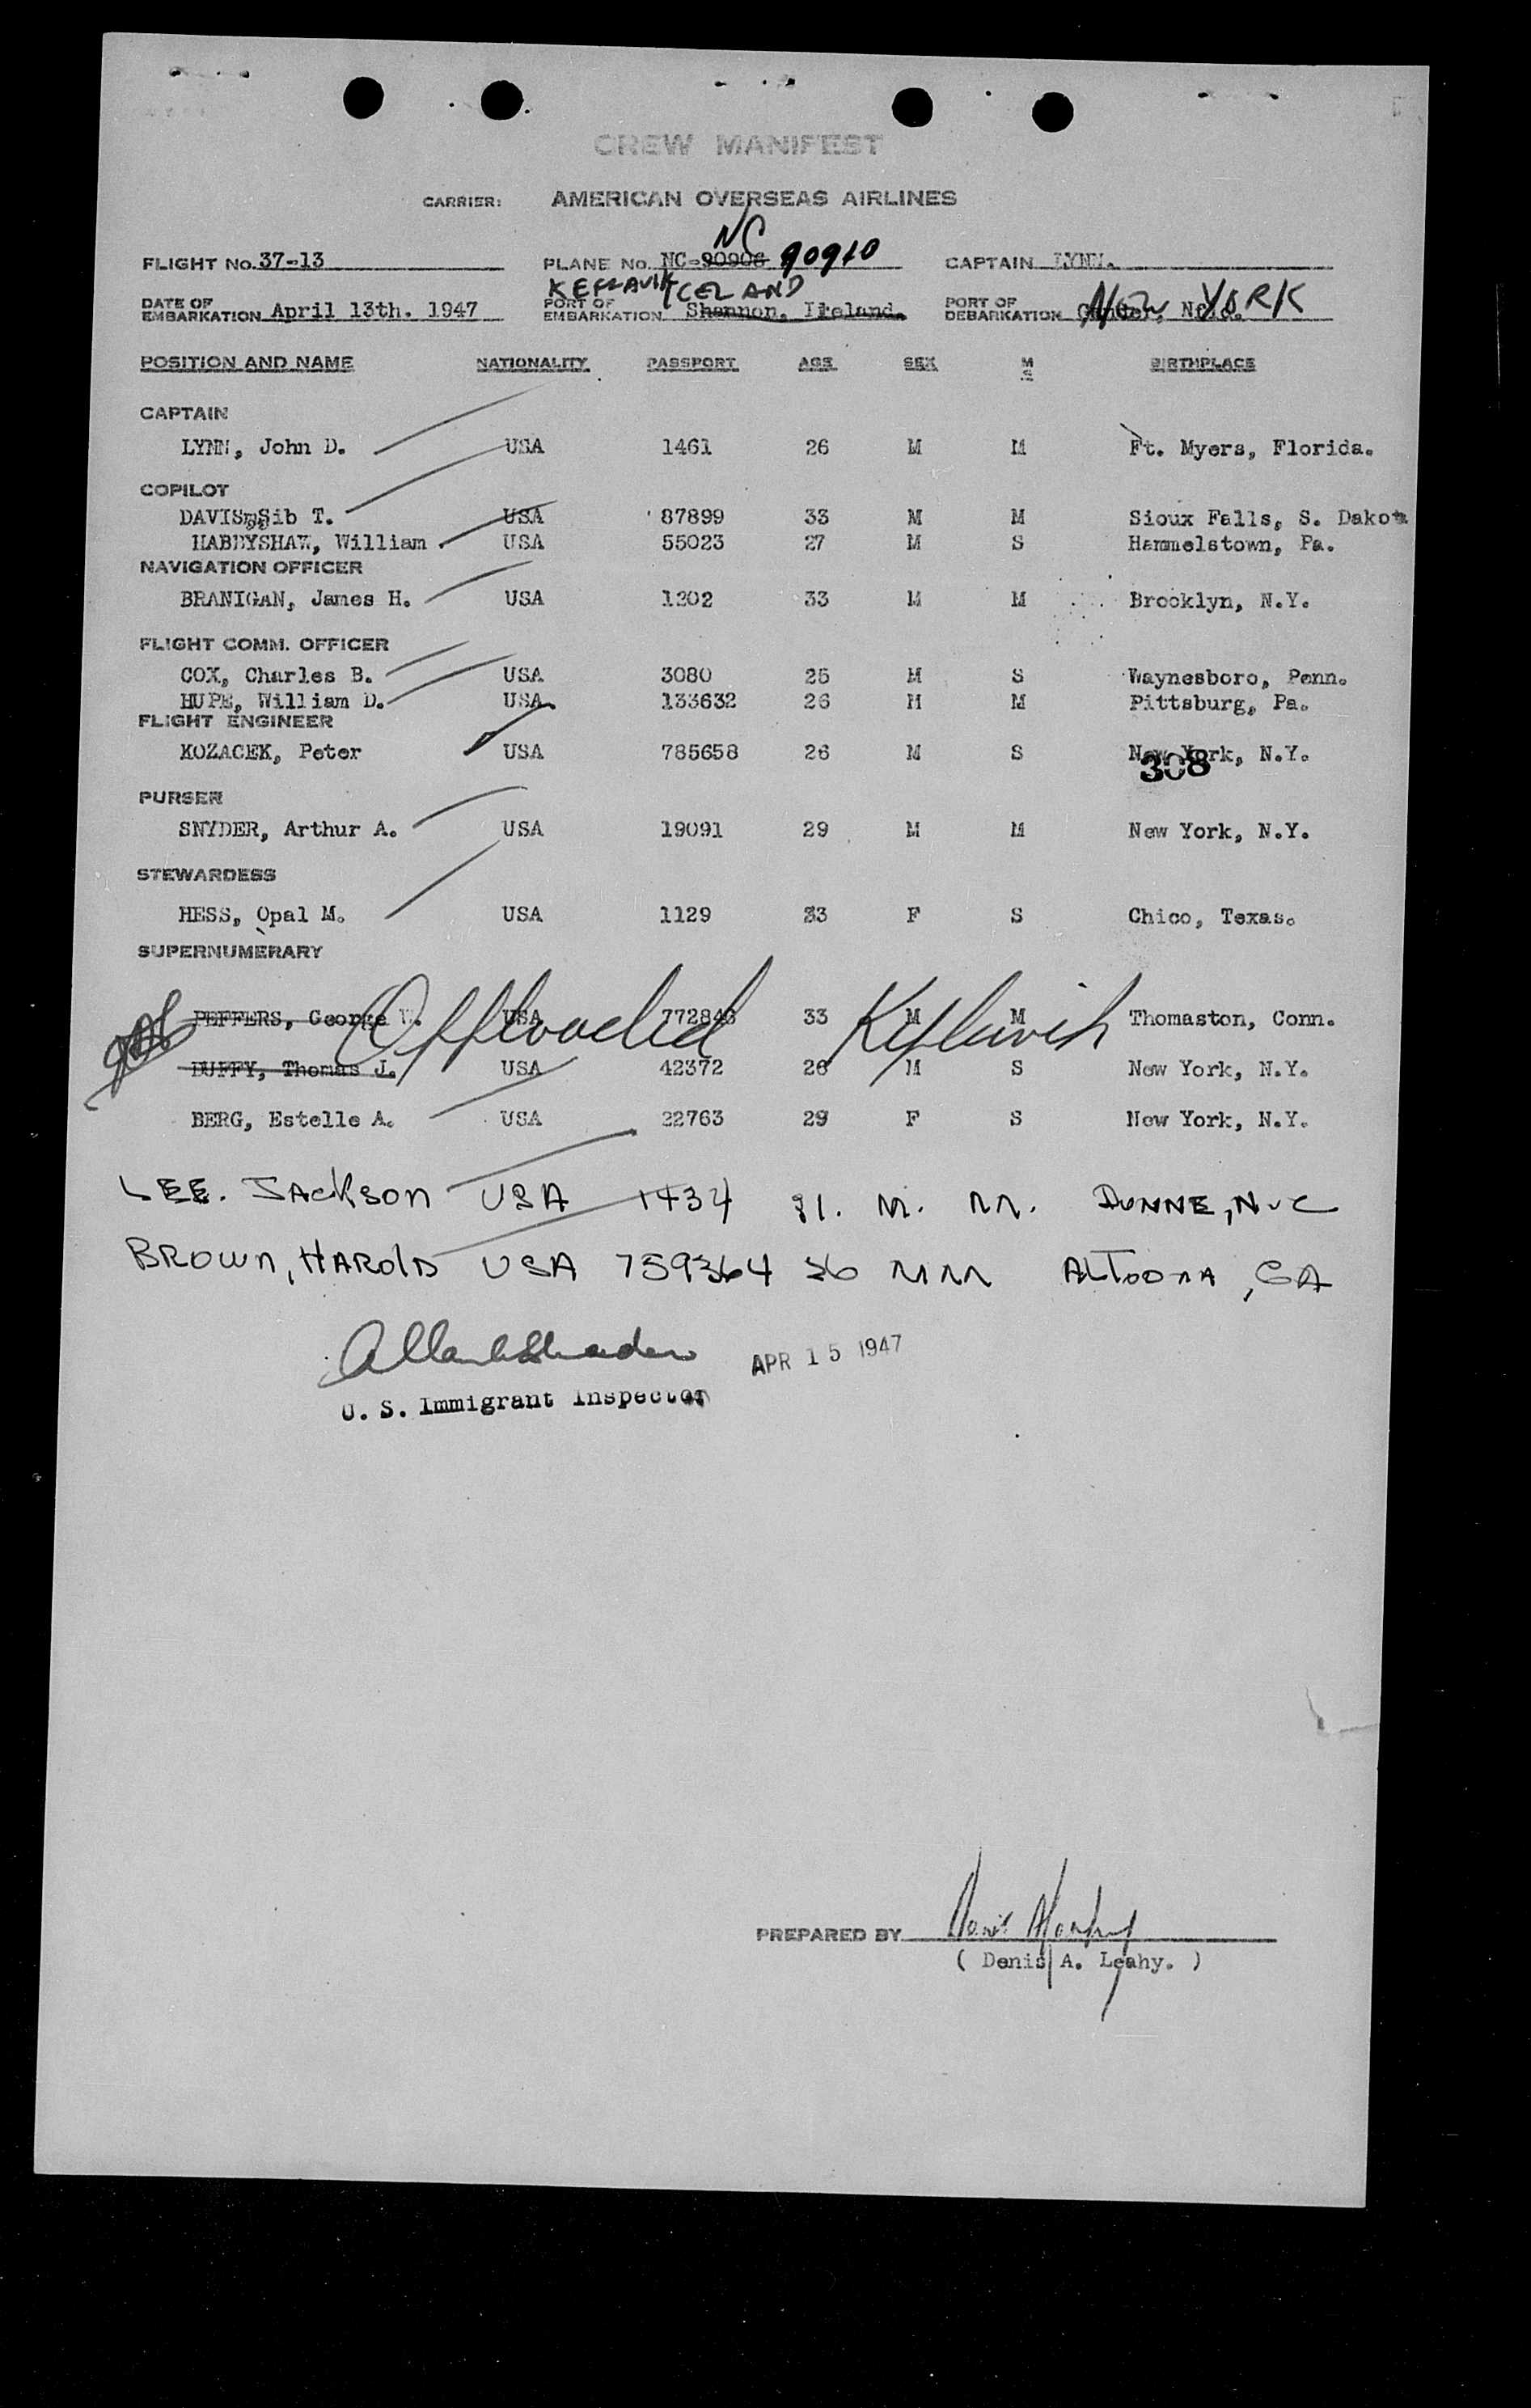 CREW MANIFEST
CARRIER: AMERICAN OVERSEAS AIRLINES
NC
FLIGHT No. 37-13 PLANE No. NC-90906 90910 CAPTAIN LYNN.
KEFLAVIK ICELAND New YORK
DATE OF EMBARKATION April 13th. 1947 PORT OF EMBARKATION Shannon, Ireland. PORT OF DEBARKATION Nfld.
POSITION AND NAME NATIONALITY PASSPORT AGE SEX M S BIRTHPLACE
CAPTAIN
LYNN, John D. USA 1461 26 M M Ft. Myers, Florida.
COPILOT
DAVIS, Sib T. USA 87899 33 M M Sioux Falls, S. Dakota
HABDYSHAW, William USA 55023 27 M S Hammelstown, Pa.
NAVIGATION OFFICER
BRANIGAN, James H. USA 1202 33 M M Brooklyn, N.Y.
FLIGHT COMM. OFFICER
COX, Charles B. USA 3080 25 M S Waynesboro, Penn.
HUPE, William D. USA 133632 26 M M Pittsburg, Pa.
FLIGHT ENGINEER
KOZACEK, Peter USA 785658 26 M S New York, N.Y.
308
PURSER
SNYDER, Arthur A. USA 19091 29 M M New York, N.Y.
STEWARDESS
HESS, Opal M. USA 1129 33 F S Chico, Texas.
SUPERNUMERARY
PEFFERS, George W. USA 772846 33 M M Thomaston, Conn.
Offloaded Keflavik
DUFFY, Thomas J. USA 42372 26 M S New York, N.Y.
BERG, Estelle A. USA 22763 29 F S New York, N.Y.
LEE. JACKSON USA 1434 31. M. M. DUNNE, N.C
BROWN, HAROLD USA 759364 36 M M ALTOONA, GA
APR 15 1947
U. S. Immigrant Inspector
PREPARED BY
( Denis A. Leahy. )